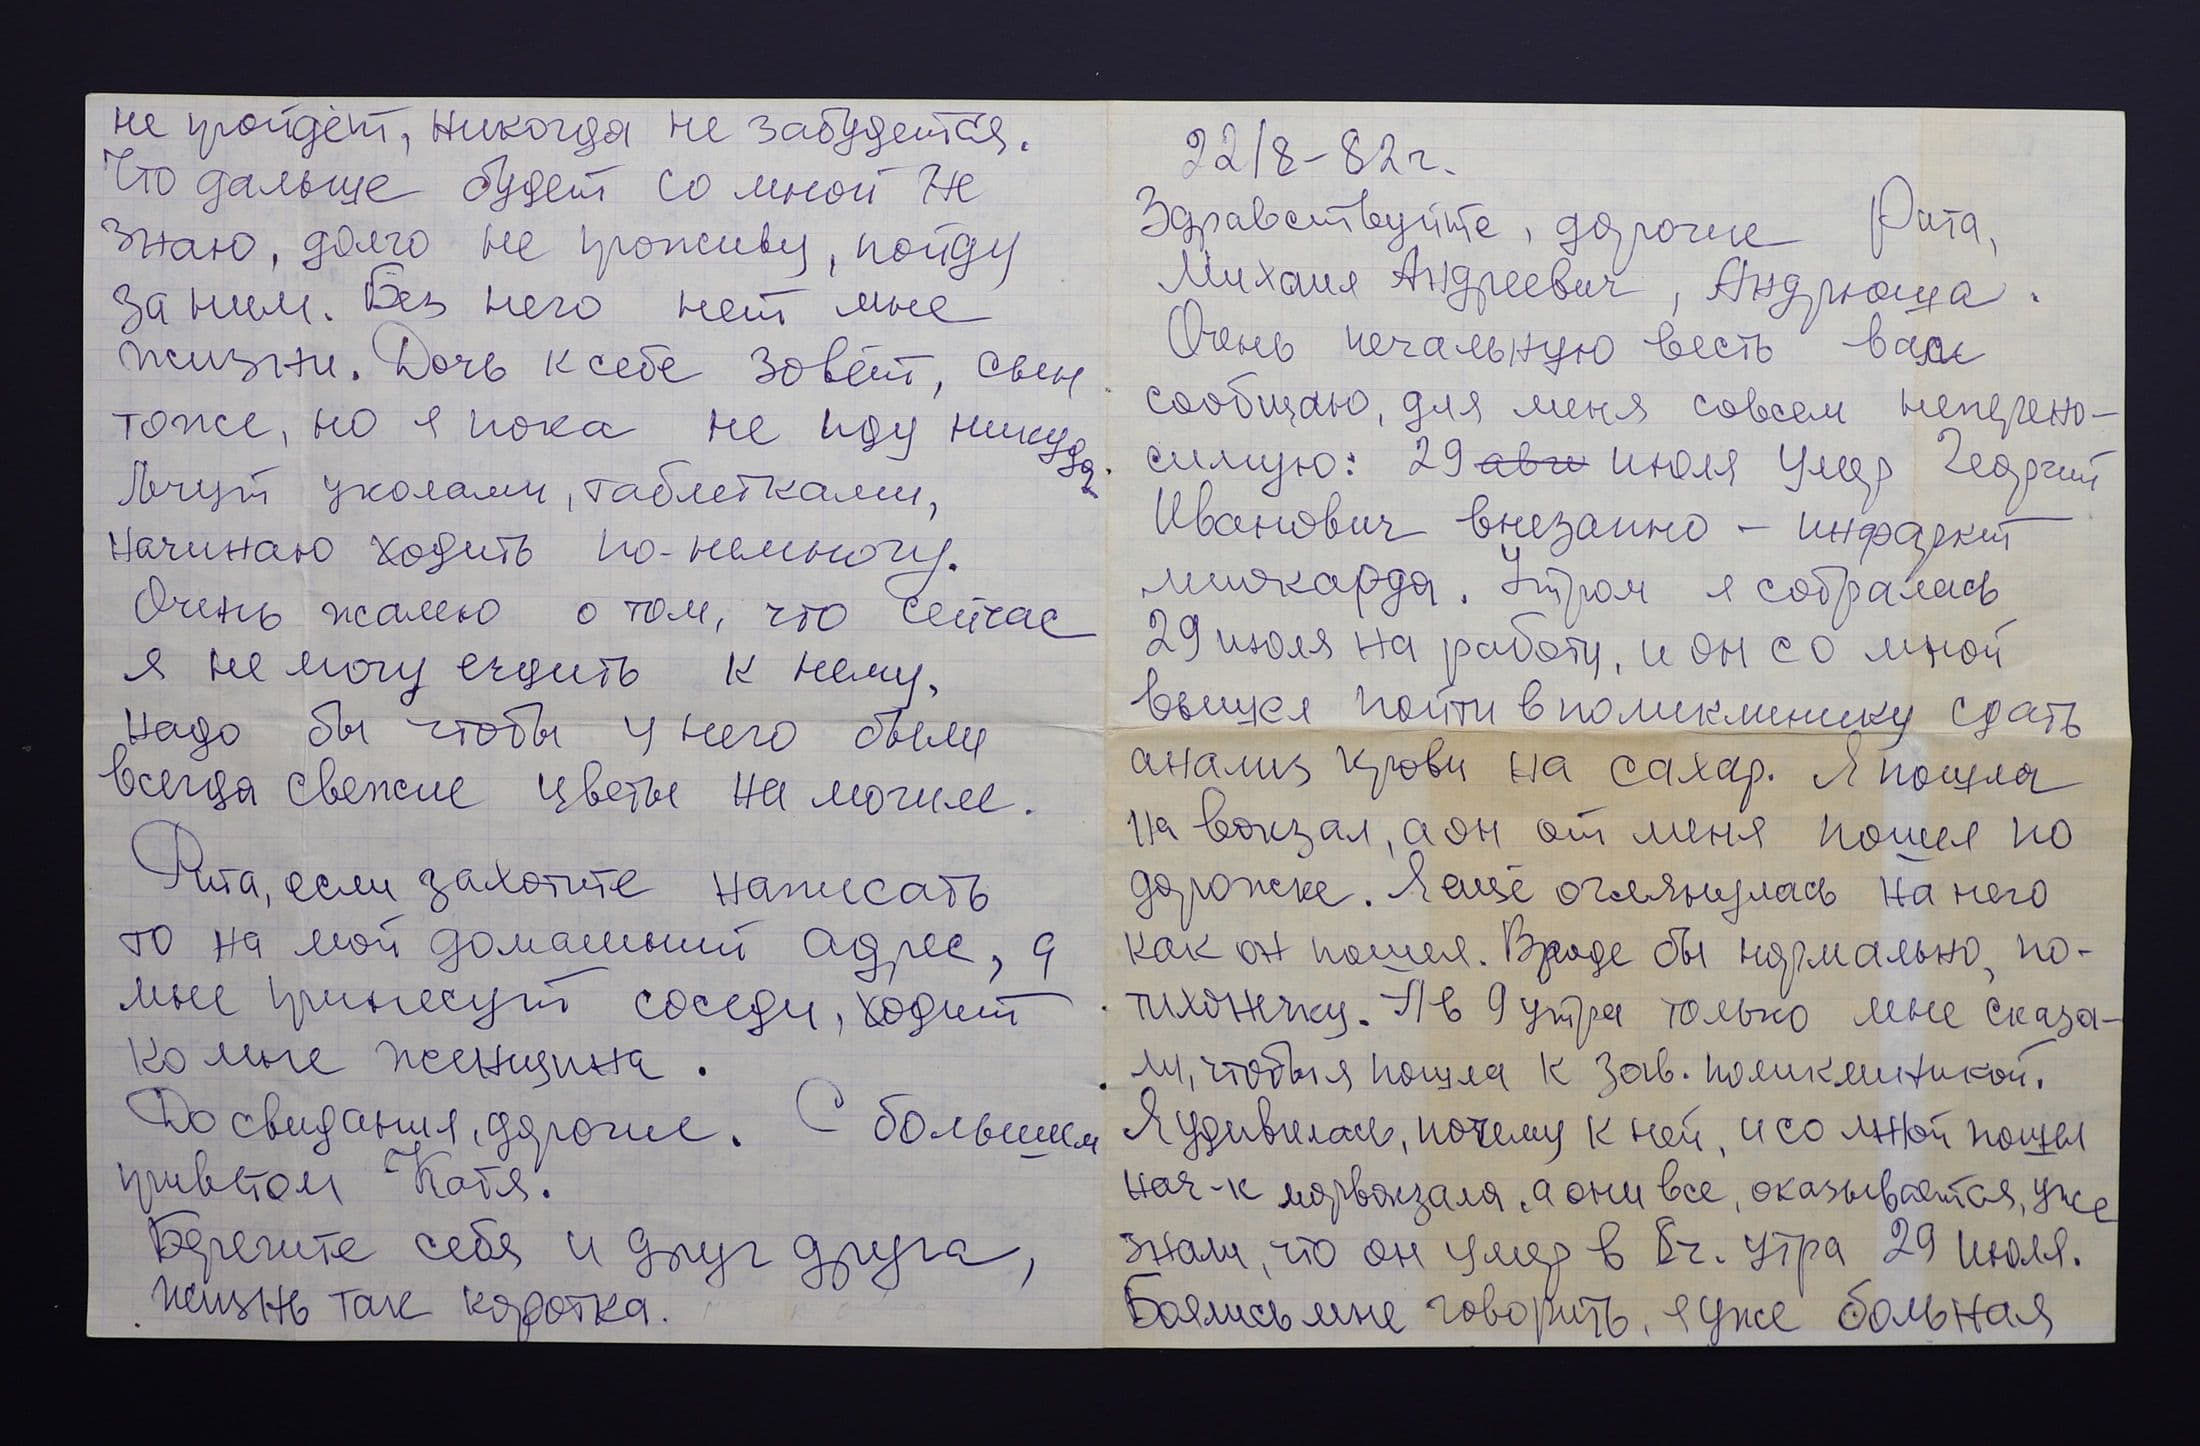 не пройдёт, никогда не забудется.
Что дальше будет со мной не
знаю, долго не проживу, пойду
за ним. Без него нет мне
жизни. Дочь к себе зовёт, сын
тоже, но я пока не иду никуда.
Лечут уколами, таблетками,
начинаю ходить по-немногу.
Очень жалею о том, что сейчас
я не могу ездить к нему,
надо бы чтобы у него были
всегда свежие цветы на могиле.
Рита, если захотите написать
то на мой домашний адрес, а
мне принесут соседи, ходит
ко мне женщина.
До свидания, дорогие. С большим
приветом Катя.
Берегите себя и друг друга,
жизнь так коротка.
22/8-82 г.
Здравствуйте, дорогие Рита,
Михаил Андреевич, Андрюша.
Очень печальную весть вам
сообщаю, для меня совсем неперено-
симую: 29 авг июля умер Георгий
Иванович внезапно – инфаркт
миокарда. Утром я собралась
29 июля на работу, и он со мной
вышел пойти в поликлинику сдать
анализ крови на сахар. Я пошла
на вокзал, а он от меня пошел по
дорожке. Я ещё оглянулась на него
как он пошел. Вроде бы нормально, по-
тихонечку. А в 9 утра только мне сказа-
ли, чтобы я пошла к зав. поликлиникой.
Я удивилась, почему к ней, и со мной пошел
нач-к морвокзала, а они все, оказывается, уже
знали, что он умер в 8 ч. утра 29 июля.
Боялись мне говорить, я уже больная